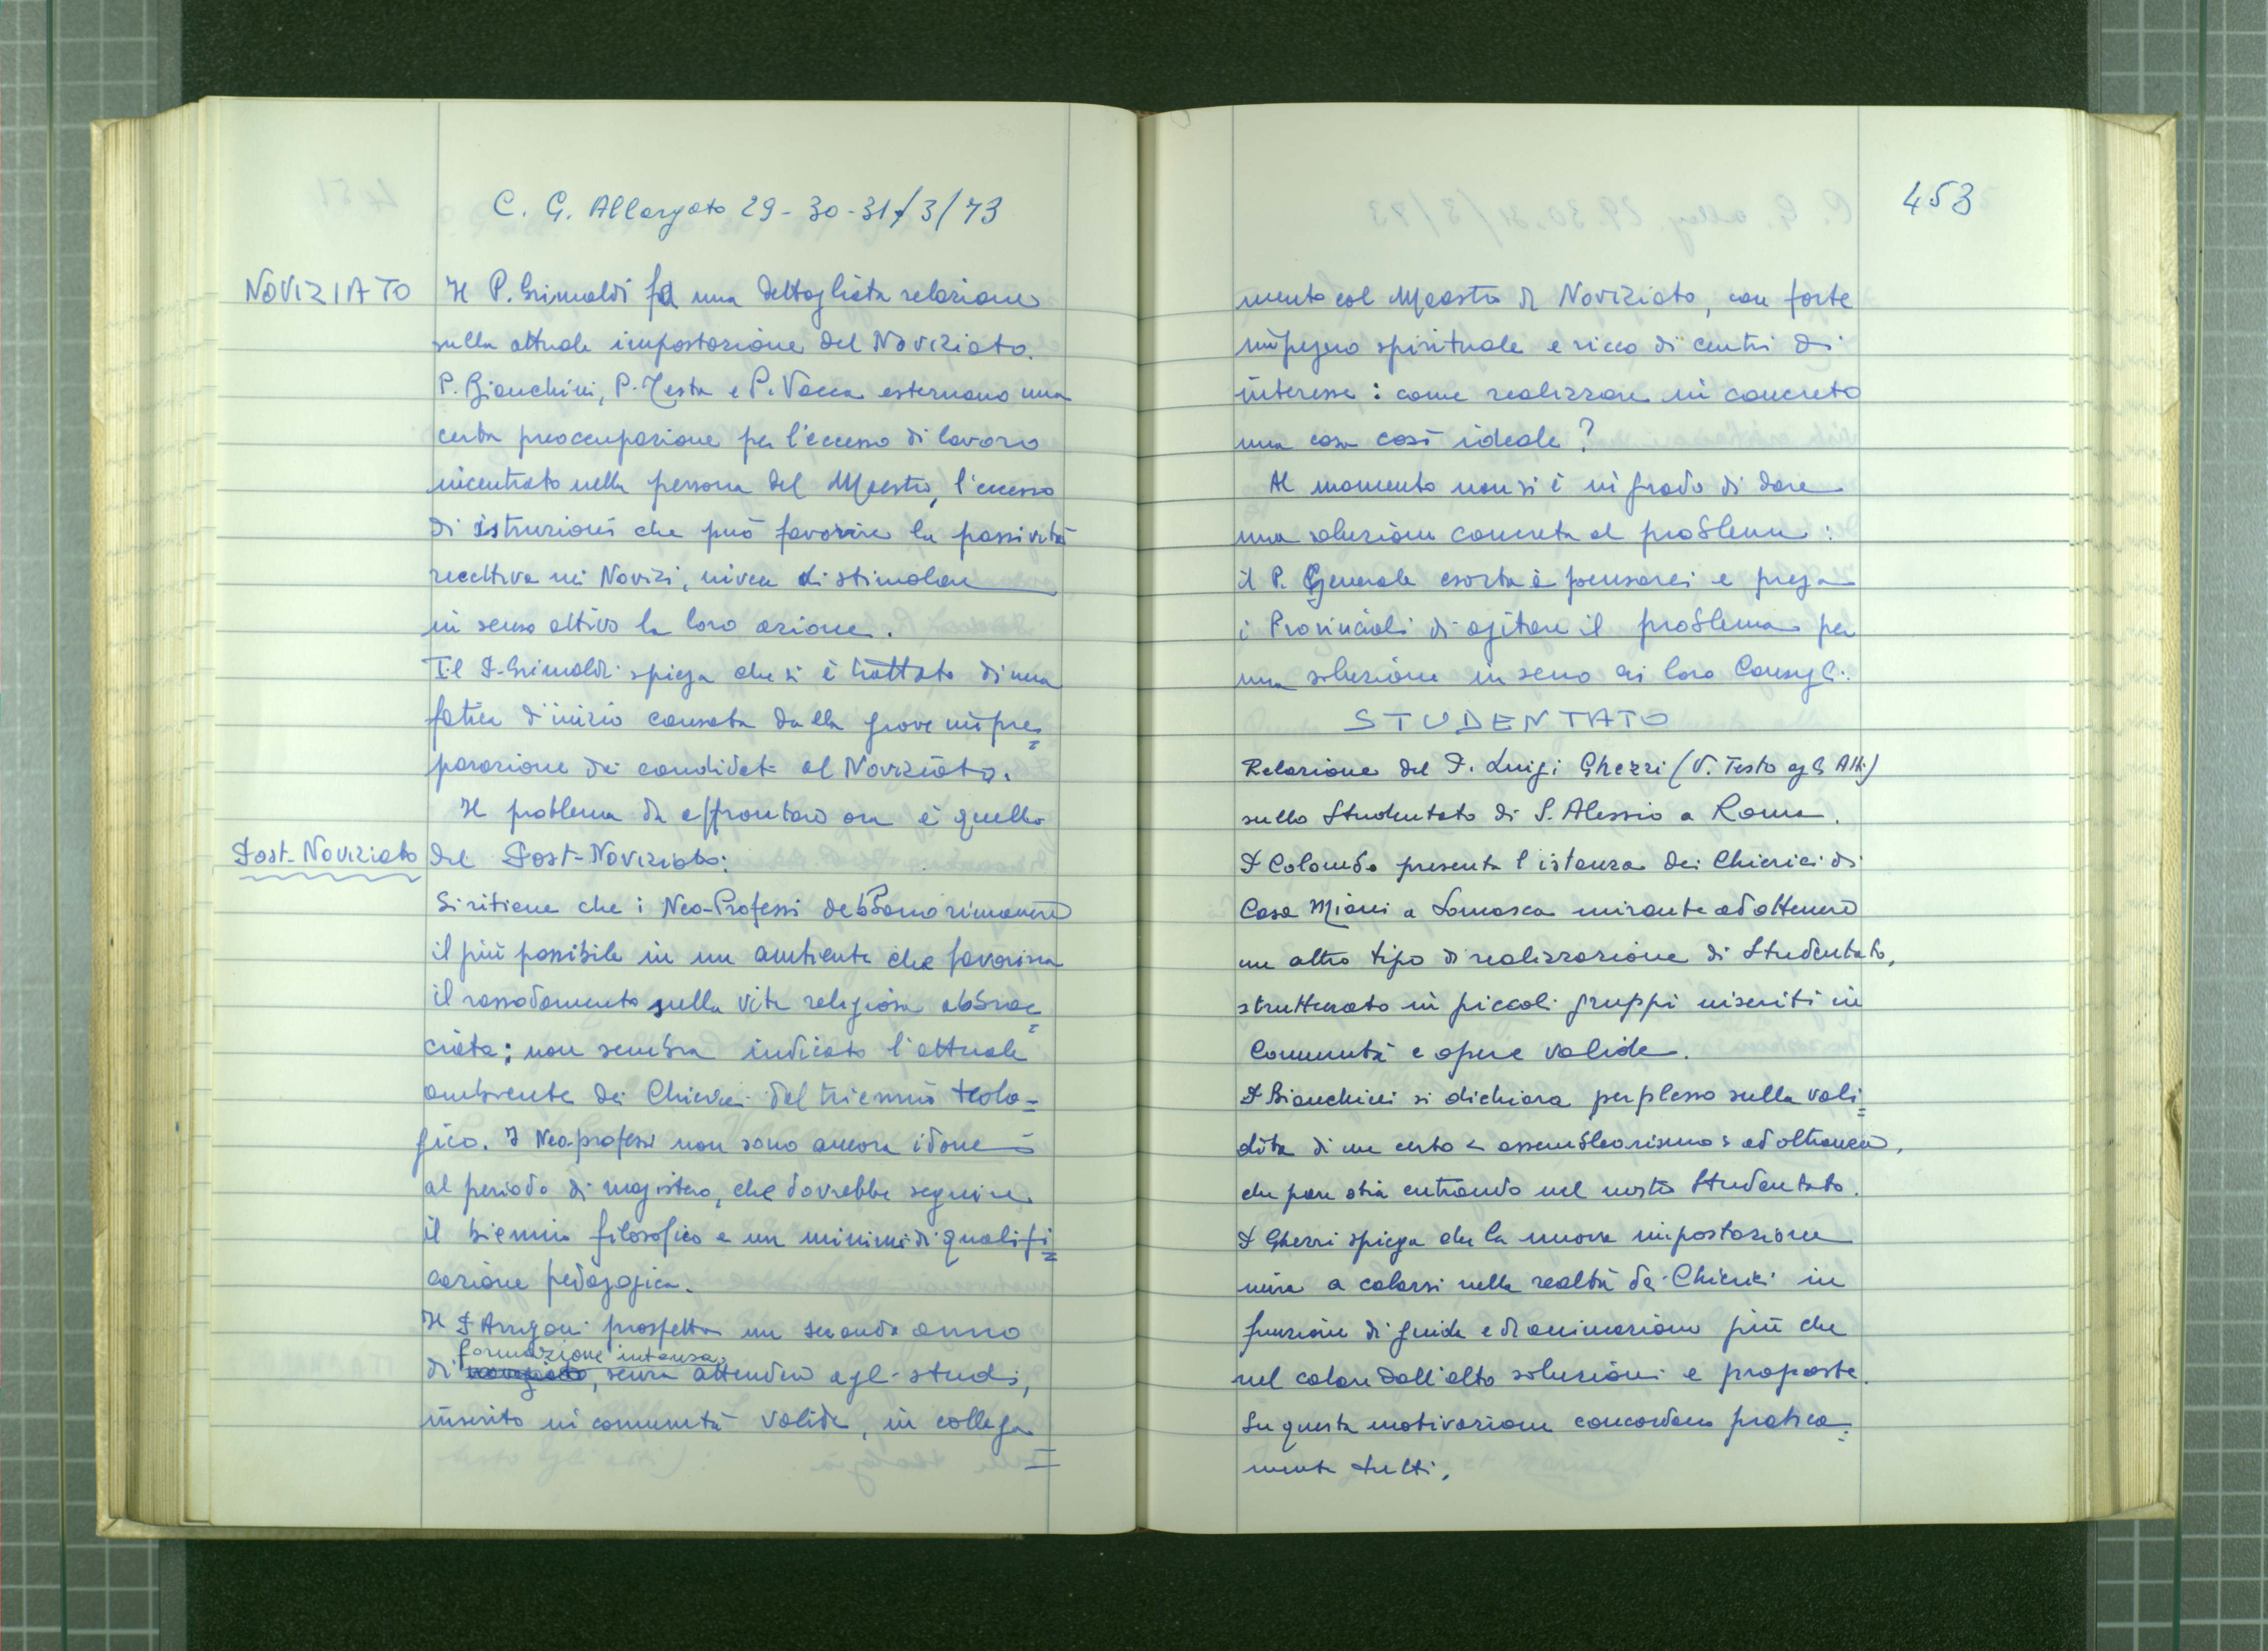 C. G. Allargato 29-30-31/3/73
NOVIZIATO
Il P. Grimaldi fa una dettagliata relazione
sulla attuale impostazione del Noviziato.
P. Bianchini, P. Testa e P. Vacca esternano una
certa preoccupazione per l'eccesso di lavoro
incentrato nella persona del Maestro, l'eccesso
di istruzioni che può favorire la passività
recettiva nei Novizi, invece di stimolare
in senso attivo la loro azione.
Il P. Grimaldi spiega che si è trattato di una
fatica d'inizio causata dalla grave impre=
parazione dei candidati al Noviziato.
Il problema da affrontare ora è quello
Post-Noviziato
del Post-Noviziato:
Si ritiene che i Neo-Professi debbano rimanere
il più possibile in un ambiente che favorisca
il rassodamento sulla vita religiosa abbrac=
ciata; non sembra indicato l'attuale
ambiente dei Chierici del triennio teolo=
gico. I Neo-professi non sono ancora idonei
al periodo di magistero, che dovrebbe seguire
il biennio filosofico e un minimo di qualifi=
cazione pedagogica.
Il P. Arrigoni prospetta un secondo anno
formazione intensa
di noviziato, senza attendere agli studi,
inserito in comunità valida, in collega=
453
mento col Maestro di Noviziato, con forte
impegno spirituale e ricco di centri di
interesse: come realizzare in concreto
una cosa così ideale?
Al momento non si è in grado di dare
una soluzione concreta al problema:
il P. Generale esorta a pensarci e prega
i Provinciali di agitare il problema per
una soluzione in seno ai loro Consigli.
STUDENTATO
Relazione del P. Luigi Ghezzi (V. Testo agli Atti)
sullo Studentato di S. Alessio a Roma.
P Colombo presenta l'istanza dei Chierici di
Casa Miani a Somasca mirante ad ottenere
un altro tipo di realizzazione di Studentato,
strutturato in piccoli gruppi inseriti in
Comunità e opere valide.
P Bianchini si dichiara perplesso sulla vali=
dità di un certo < assemblearismo > ad oltranza,
che pare stia entrando nel nostro Studentato.
P Ghezzi spiega che la nuova impostazione
mira a calarsi nella realtà dei Chierici in
funzione di guida e di animazione più che
nel calare dall'alto soluzioni e proposte.
Su questa motivazione concordano pratica=
mente tutti.